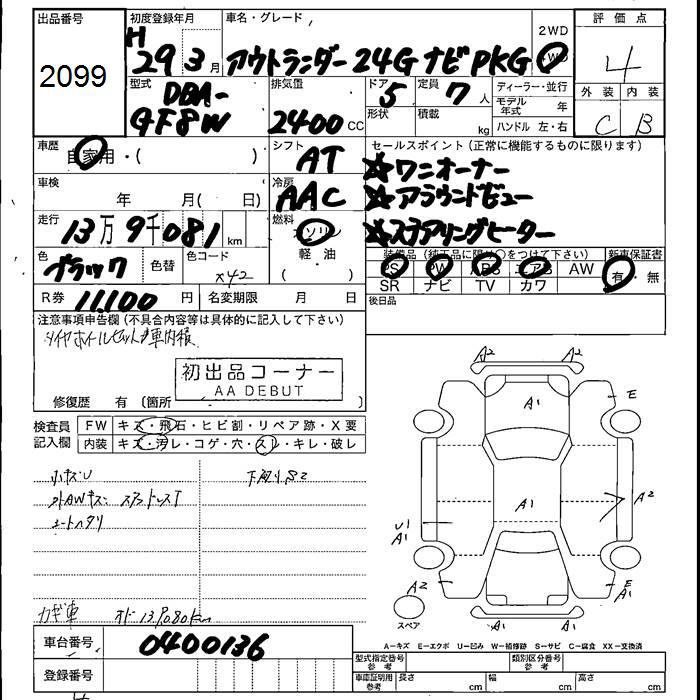 出品番号 初度登録年月 車名・グレード 評価点
2WD
2099 H 29 3月 アウトランダー 24G ナビPKG 4WD 4
型式 排気量 ドア 定員 ディーラー・並行 外装 内装
DBA- 5 7人 モデル年式 年
GF8W 2400CC 形状 積載 kg ハンドル 左・右 C B
車歴 シフト セールスポイント (正常に機能するものに限ります)
自家用・( ) AT ☆ワニオーナー
車検 冷房
年 月( 日) AAC ☆アラウンドビュー
走行 燃料
13万9千081km ガソリン ☆ステアリングヒーター
軽油
色 色替 色コード 装備品 (純正品に限り○をつけて下さい) 新車保証書
ブラック X42 PS PW ABS エアB AW 有・無
SR ナビ TV カワ
R券 11,100円 名変期限 月 日 後日品
注意事項申告欄 (不具合内容等は具体的に記入して下さい)
初出品コーナー
AA DEBUT
修復歴 有 (箇所 )
検査員 FW キズ・飛石・ヒビ割・リペア跡・X要
記入欄 内装 キズ・汚レ・コゲ・穴・スレ・キレ・破レ
小キズU
カギ車
車台番号 0400136
登録番号
A2 A2
A1 E
A1 A2
U1
A1
A2 E
A1
A1
スペア A2 A2
A－キズ E－エクボ U－凹み W－補修跡 S－サビ C－腐食 XX－交換済
型式指定番号 類別区分番号
参考 参考
車庫証明用 長さ 幅 高さ
参考 cm cm cm